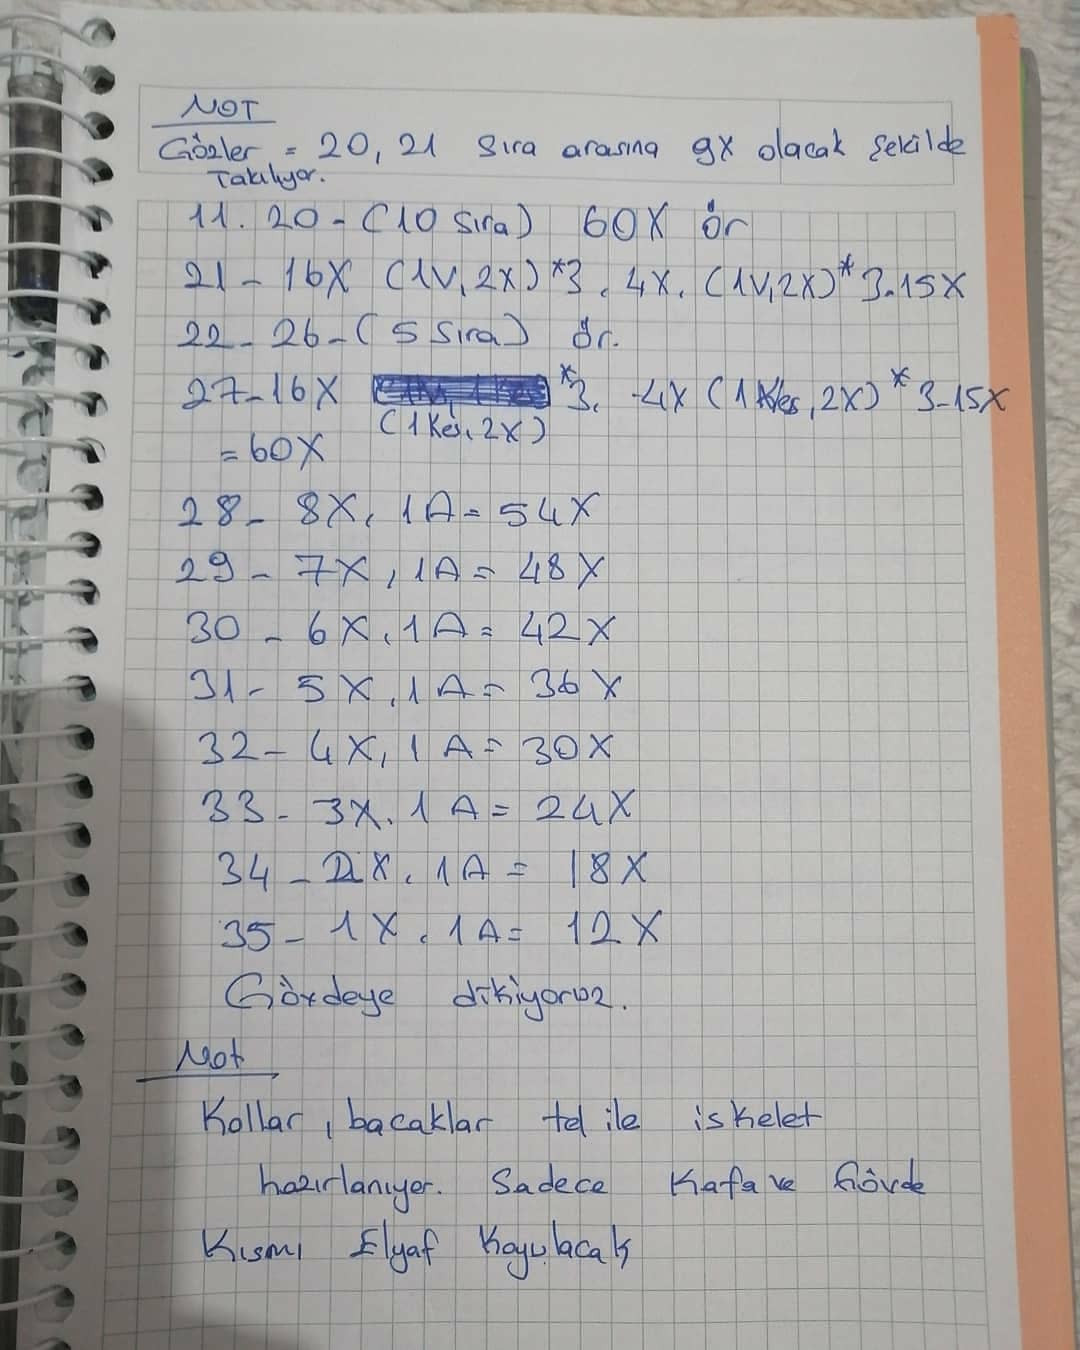 NOT
Gözler = 20, 21 Sıra arasına 9X olacak Şekilde
Takılıyor.
11. 20 - (10 Sıra) 60X ör
21 - 16X (1V, 2X)*3, 4X, (1V,2X)*3.15X
22 - 26 - (5 Sıra) ör.
27 - 16X *3, 4X (1 Kes, 2X)*3-15X
(1 Kes, 2X)
= 60X
28 - 8X, 1A = 54X
29 - 7X, 1A = 48X
30 - 6X, 1A = 42X
31 - 5X, 1A = 36X
32 - 4X, 1A = 30X
33 - 3X. 1A = 24X
34 - 2X, 1A = 18X
35 - 1X, 1A = 12X
Gövdeye dikiyoruz.
Not
Kollar, bacaklar tel ile iskelet
hazırlanıyor. Sadece Kafa ve Gövde
Kısmı Elyaf Koyulacak